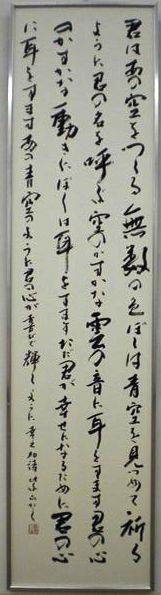 君はあの空をつくる無数の色ぼくは青空を見つめて祈る
ように君の名を呼ぶ空のかすかな雲の音に耳をすます君の心
のかすかな動きにぼくは耳をすますただ君が幸せになるために君の心
に耳をすますあの青空のように君の心が喜びで輝くように